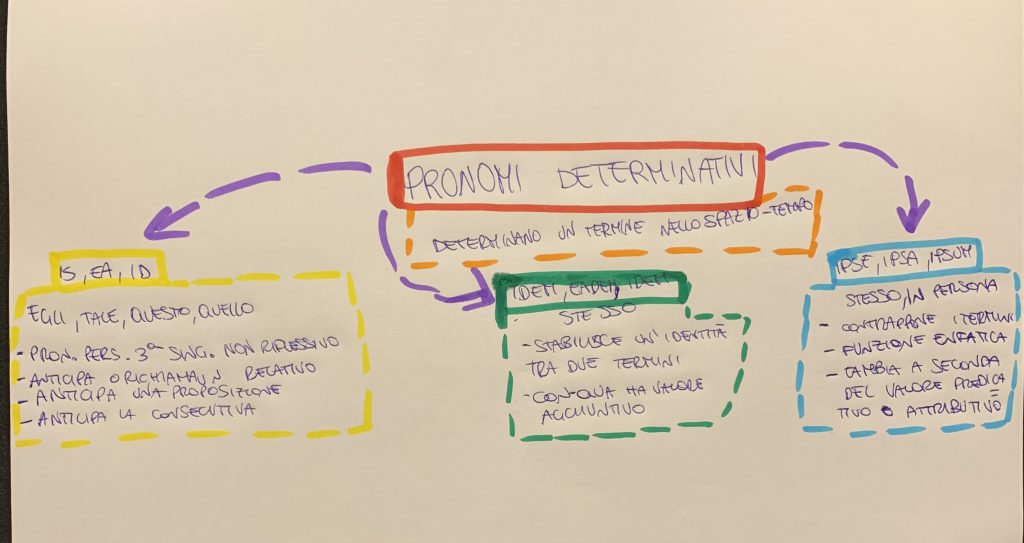 PRONOMI DETERMINATIVI
DETERMINANO UN TERMINE NELLO SPAZIO-TEMPO
IS, EA, ID
EGLI, TALE, QUESTO, QUELLO
- PRON. PERS. 3ª SING. NON RIFLESSIVO
- ANTICIPA O RICHIAMA UN RELATIVO
- ANTICIPA UNA PROPOSIZIONE
- ANTICIPA LA CONSECUTIVA
IDEM, EADEM, IDEM
STESSO
- STABILISCE UN'IDENTITÀ
TRA DUE TERMINI
- CON QUA HA VALORE
AGGIUNTIVO
IPSE, IPSA, IPSUM
STESSO, IN PERSONA
- CONTRAPPONE I TERMINI
- FUNZIONE ENFATICA
- CAMBIA A SECONDA
DEL VALORE PREDICA
TIVO O ATTRIBUTIVO